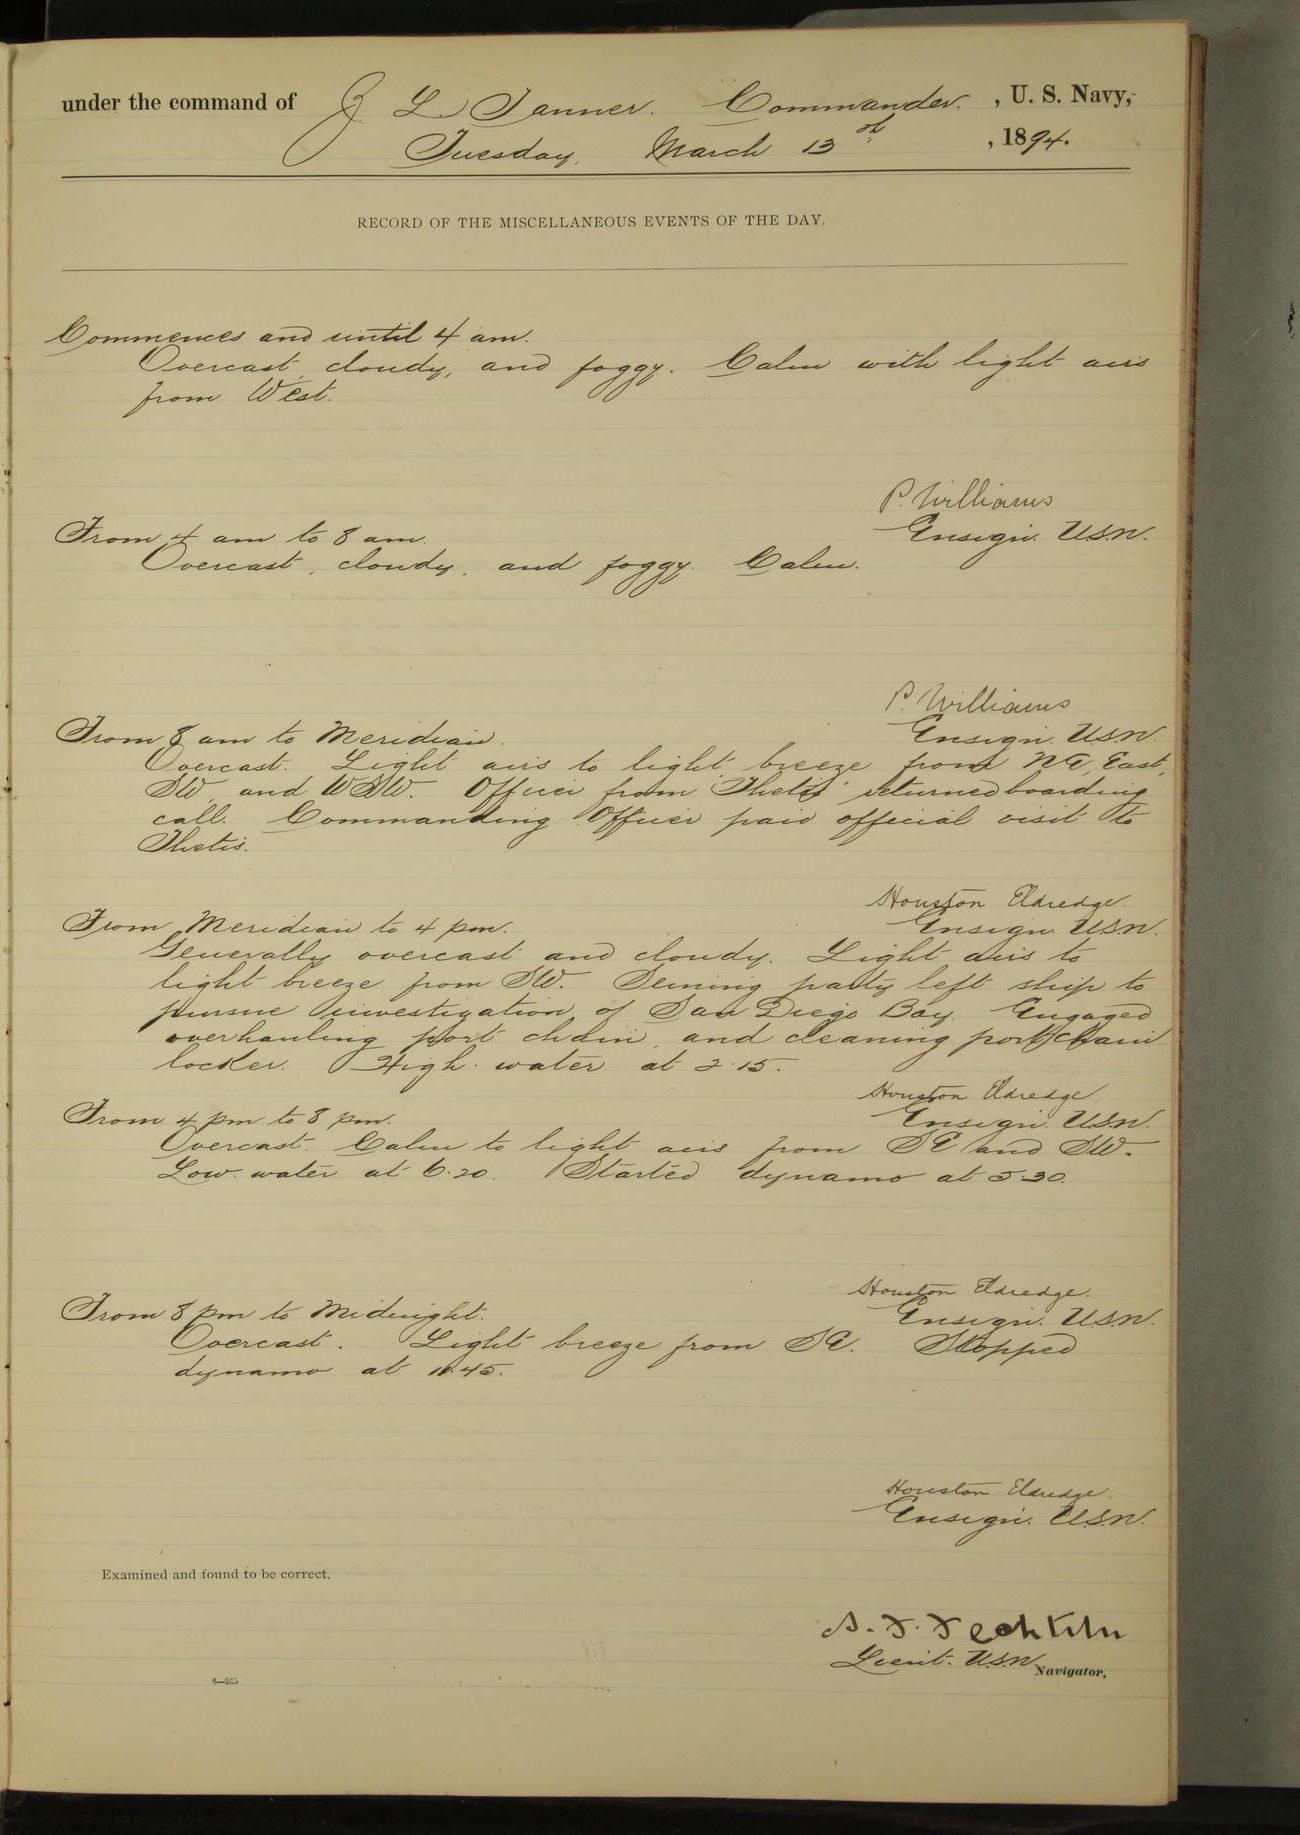 under the command of Z L Tanner. Commander. , U. S. Navy,
Tuesday, March 13th , 1894.
RECORD OF THE MISCELLANEOUS EVENTS OF THE DAY.
Commences and until 4 am.
Overcast, cloudy, and foggy. Calm with light airs
from West.
P. Williams
Ensign. U.S.N.
From 4 am to 8 am.
Overcast, cloudy, and foggy. Calm.
P. Williams
Ensign. U.S.N.
From 8 am to Meridian.
Overcast. Light airs to light breeze from NE, East,
SW, and WSW. Officer from "Thetis" returned boarding
call. Commanding Officer paid official visit to
Thetis.
Houston Eldredge.
Ensign U.S.N.
From Meridian to 4 pm.
Generally overcast and cloudy. Light airs to
light breeze from SW. Seining party left ship to
pursue investigation of San Diego Bay. Engaged
overhauling port chain, and cleaning port chain
locker. High water at 2.15.
Houston Eldredge
Ensign. U.S.N.
From 4 pm to 8 pm.
Overcast. Calm to light airs from SE and SW.
Low water at 6.20. Started dynamo at 5.30.
Houston Eldredge.
Ensign. U.S.N.
From 8 pm to Midnight.
Overcast. Light breeze from SE. Stopped
dynamo at 10.45.
Houston Eldredge.
Ensign. U.S.N.
Examined and found to be correct.
A. F. Fechteler
Lieut. U.S.N. Navigator.
4—205